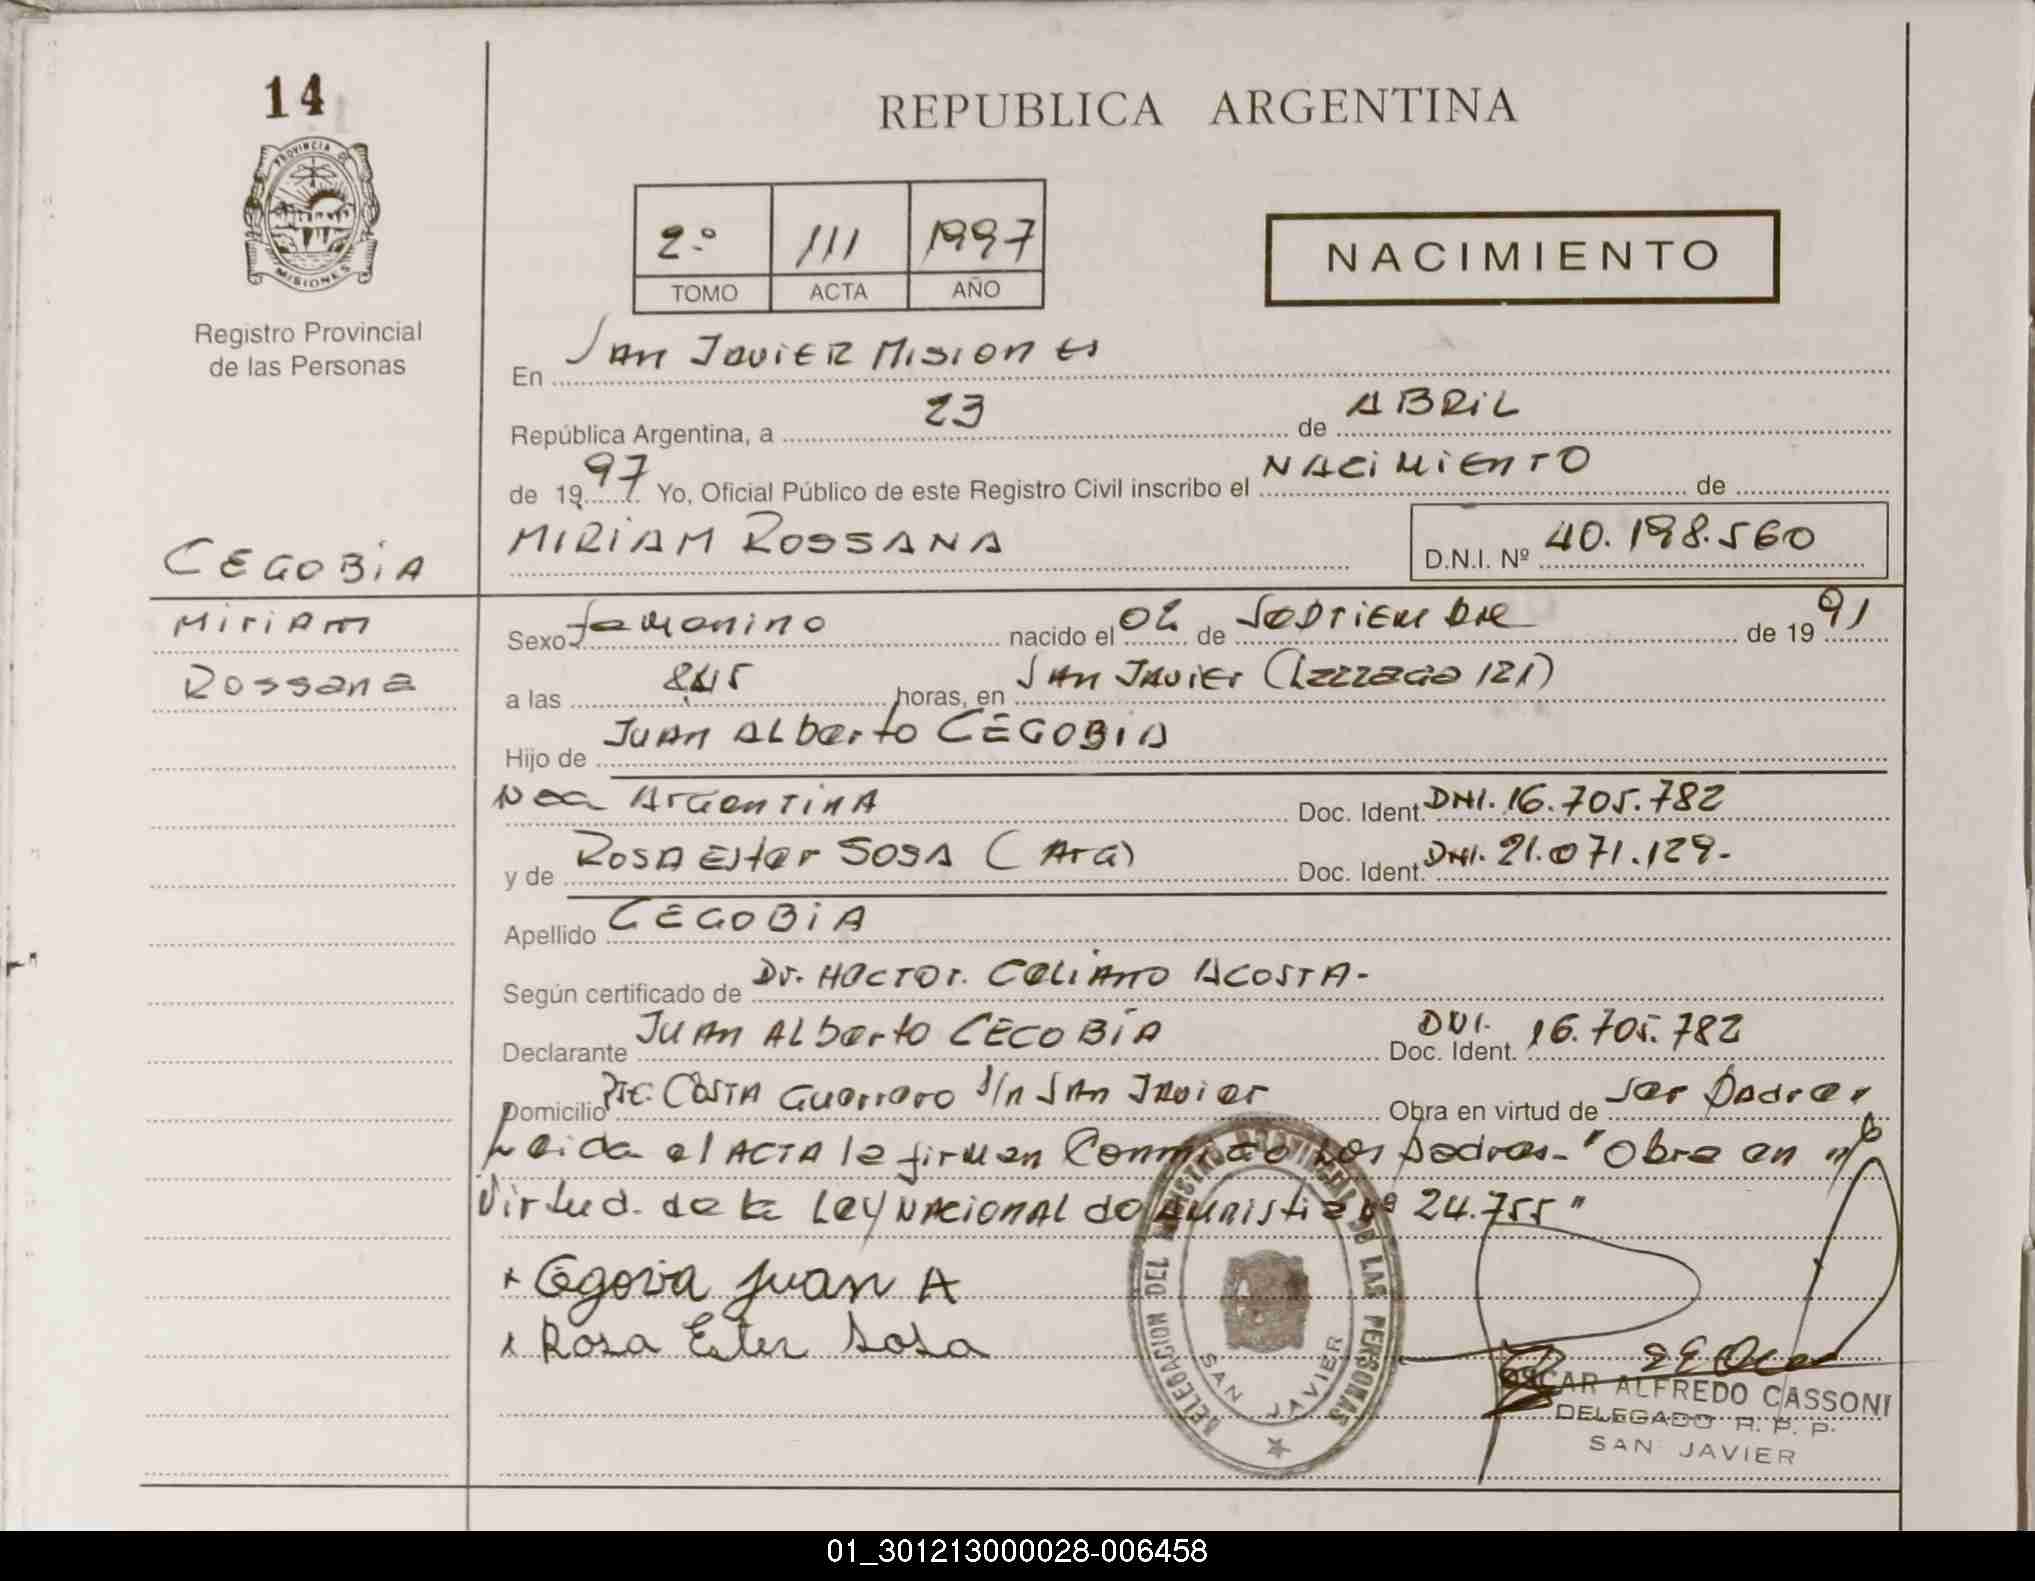 14
REPUBLICA ARGENTINA
PROVINCIA DE
MISIONES
2º 111 1997
TOMO ACTA AÑO
NACIMIENTO
Registro Provincial
de las Personas
En SAN JAVIER MISIONES
República Argentina, a 23 de ABRIL
de 1997 Yo, Oficial Público de este Registro Civil inscribo el NACIMIENTO de
MIRIAM ROSSANA
D.N.I. Nº 40.198.560
CEGOBIA
Miriam
Rossana
Sexo femenino nacido el 02 de Septiembre de 1991
a las 8:45 horas, en SAN JAVIER ( 121)
Hijo de JUAN ALberto CEGOBIA
Nac ArGentinA Doc. Ident. DNI. 16.705.782
y de ROSA Ester SOSA (ArG) Doc. Ident. DNI. 21.071.129-
Apellido CEGOBIA
Según certificado de Dr. Hector. Celiano ACOSTA-
Declarante JUAN ALberto CECOBIA Doc. Ident. DNI. 16.705.782
Domicilio Pje. COSTA Guerrero S/n SAN Javier Obra en virtud de Ser Padres
Leida el ACTA la firman Conmigo Los padres- "Obra en
Virtud de la Ley NACIONAL de Amnistia Nº 24.755"
x Cegovia Juan A
x Rosa Ester Sosa
DELEGACION DEL REGISTRO PROVINCIAL DE LAS PERSONAS
SAN JAVIER
OSCAR ALFREDO CASSONI
DELEGADO R. P. P.
SAN JAVIER
01_301213000028-006458